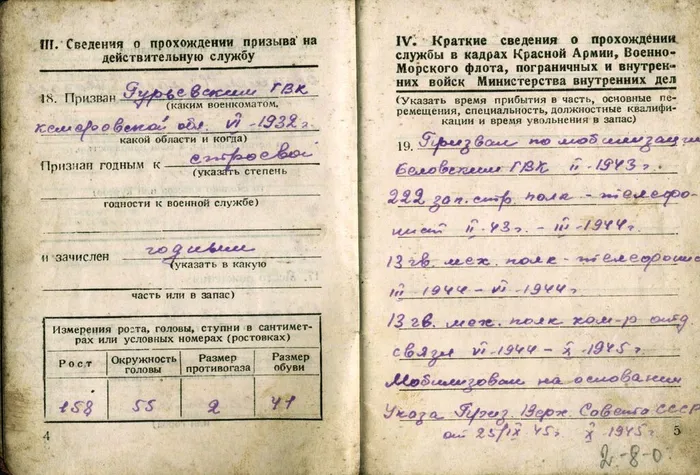 III. Сведения о прохождении призыва на
действительную службу
18. Призван Гурьевским ГВК
(каким военкоматом,
кемеровской обл. VI-1932г
какой области и когда)
Признан годным к строевой
(указать степень
годности к военной службе)
и зачислен годным
(указать в какую
часть или в запас)
Измерения роста, головы, ступни в сантимет-
рах или условных номерах (ростовках)
Рост Окружность головы Размер противогаза Размер обуви
158 55 2 41
4
IV. Краткие сведения о прохождении
службы в кадрах Красной Армии, Военно-
Морского флота, пограничных и внутрен-
них войск Министерства внутренних дел
(Указать время прибытия в часть, основные пе-
ремещения, специальность, должностные квалифи-
кации и время увольнения в запас)
19. Призван по мобилизации
Беловским ГВК II-1943г.
222 зап. стр. полк - телефо-
нист II-43г. - III-1944г
13 гв. мех. полк - телефонист
III-1944 - VI-1944г.
13 гв. мех. полк ком-р отд
связи VI-1944 - X-1945г.
Мобилизован на основании
Указа През. Верх. Совета СССР
от 25/IX 45г X-1945г.
5
2-8-0